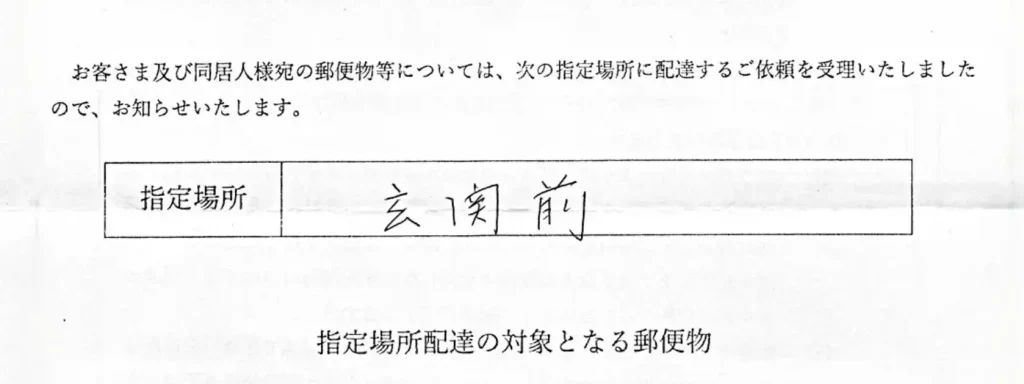 お客さま及び同居人様宛の郵便物等については、次の指定場所に配達するご依頼を受理いたしました
ので、お知らせいたします。
指定場所 玄関前
指定場所配達の対象となる郵便物